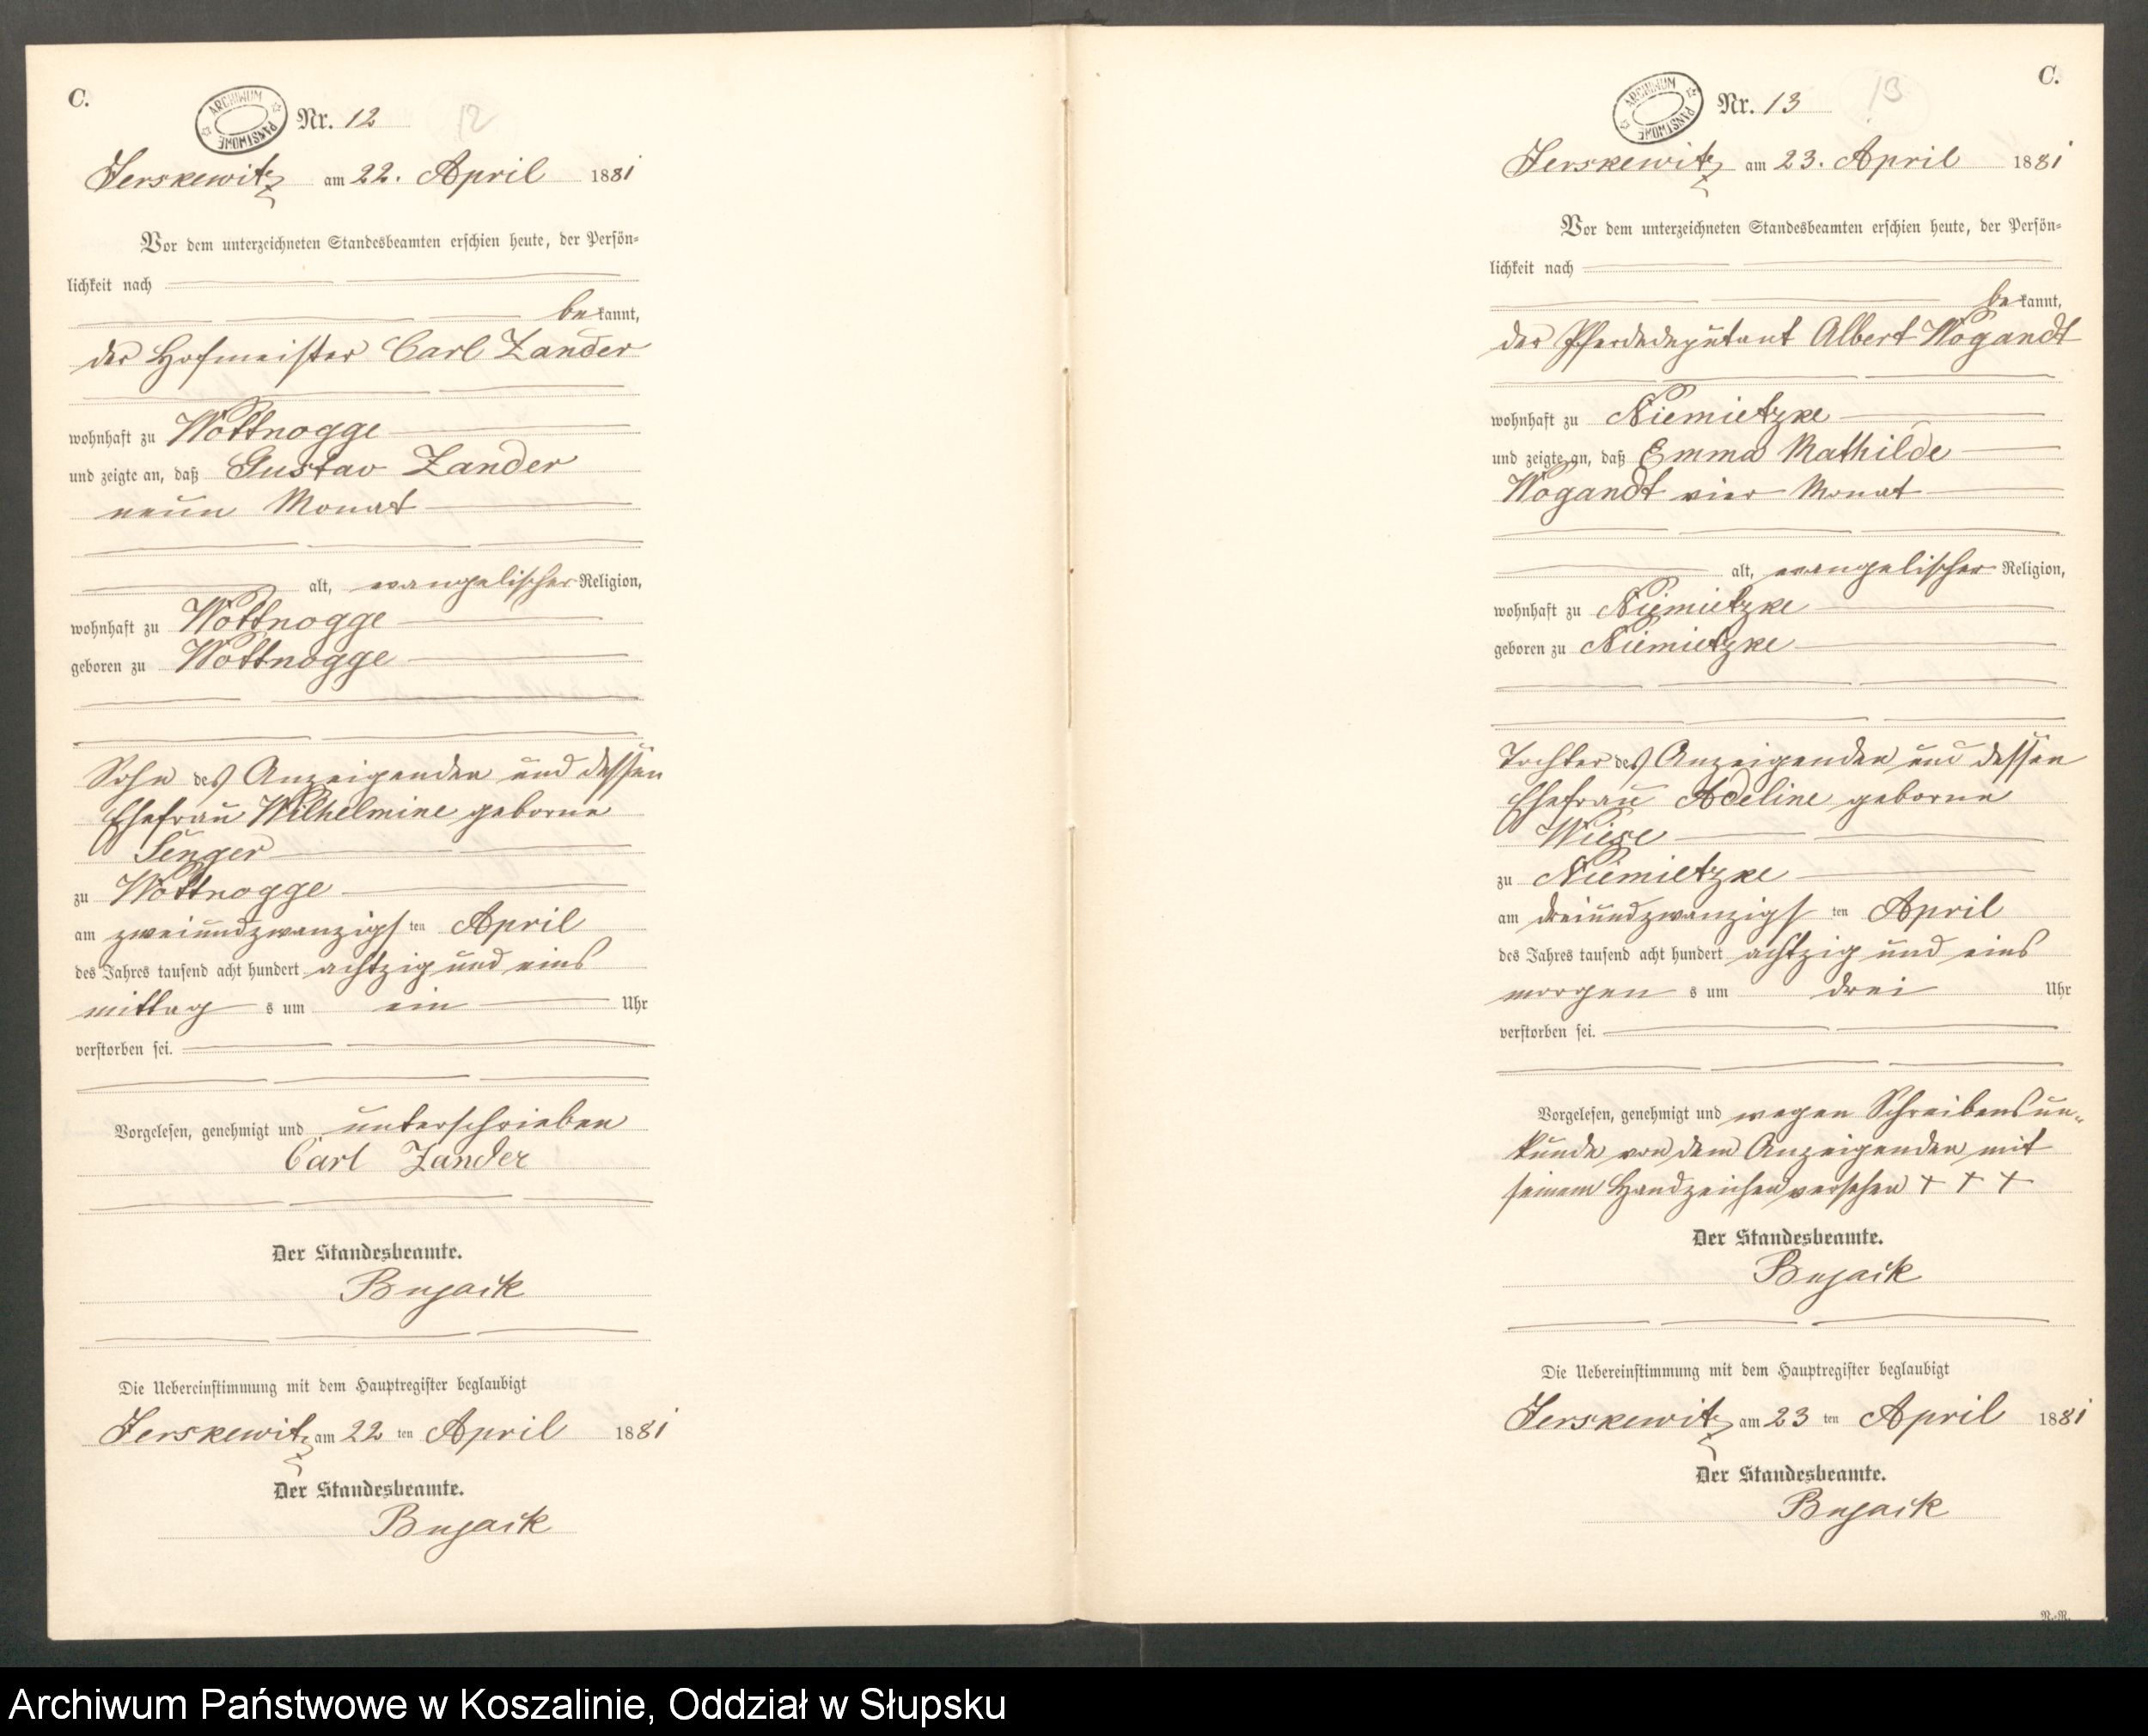 C.
ARCHIWUM PAŃSTWOWE
Nr. 12
12
Jerskewitz am 22. April 1881
Vor dem unterzeichneten Standesbeamten erschien heute, der Persön=
lichkeit nach
bekannt,
der Hofmeister Carl Zander
wohnhaft zu Wottnogge
und zeigte an, daß Gustav Zander
neun Monat
alt, evangelischer Religion,
wohnhaft zu Wottnogge
geboren zu Wottnogge
Sohn des Anzeigenden und dessen
Ehefrau Wilhelmine geborne
Senger
zu Wottnogge
am zweiundzwanzigsten April
des Jahres tausend acht hundert achtzig und eins
mittags um ein Uhr
verstorben sei.
Vorgelesen, genehmigt und unterschrieben
Carl Zander
Der Standesbeamte.
Bujack
Die Uebereinstimmung mit dem Hauptregister beglaubigt
Jerskewitz am 22ten April 1881
Der Standesbeamte.
Bujack
C.
ARCHIWUM PAŃSTWOWE
Nr. 13
13
Jerskewitz am 23. April 1881
Vor dem unterzeichneten Standesbeamten erschien heute, der Persön=
lichkeit nach
bekannt,
der Pferdedeputant Albert Wogandt
wohnhaft zu Niemietzke
und zeigte an, daß Emma Mathilde
Wogandt vier Monat
alt, evangelischer Religion,
wohnhaft zu Niemietzke
geboren zu Niemietzke
Tochter des Anzeigenden und dessen
Ehefrau Adeline geborne
Wiese
zu Niemietzke
am dreiundzwanzigsten April
des Jahres tausend acht hundert achtzig und eins
morgens um drei Uhr
verstorben sei.
Vorgelesen, genehmigt und wegen Schreibensun=
kunde von dem Anzeigenden mit
seinem Handzeichen versehen + + +
Der Standesbeamte.
Bujack
Die Uebereinstimmung mit dem Hauptregister beglaubigt
Jerskewitz am 23ten April 1881
Der Standesbeamte.
Bujack
N.-R.
Archiwum Państwowe w Koszalinie, Oddział w Słupsku